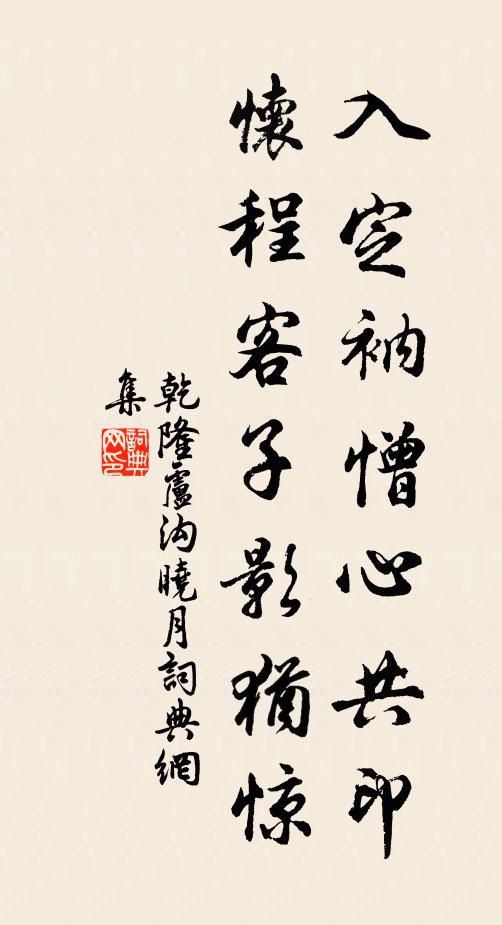 入定衲憎心共印
懷程客子影猶惊
乾隆盧沟曉月詞典網
集
詞典
网印